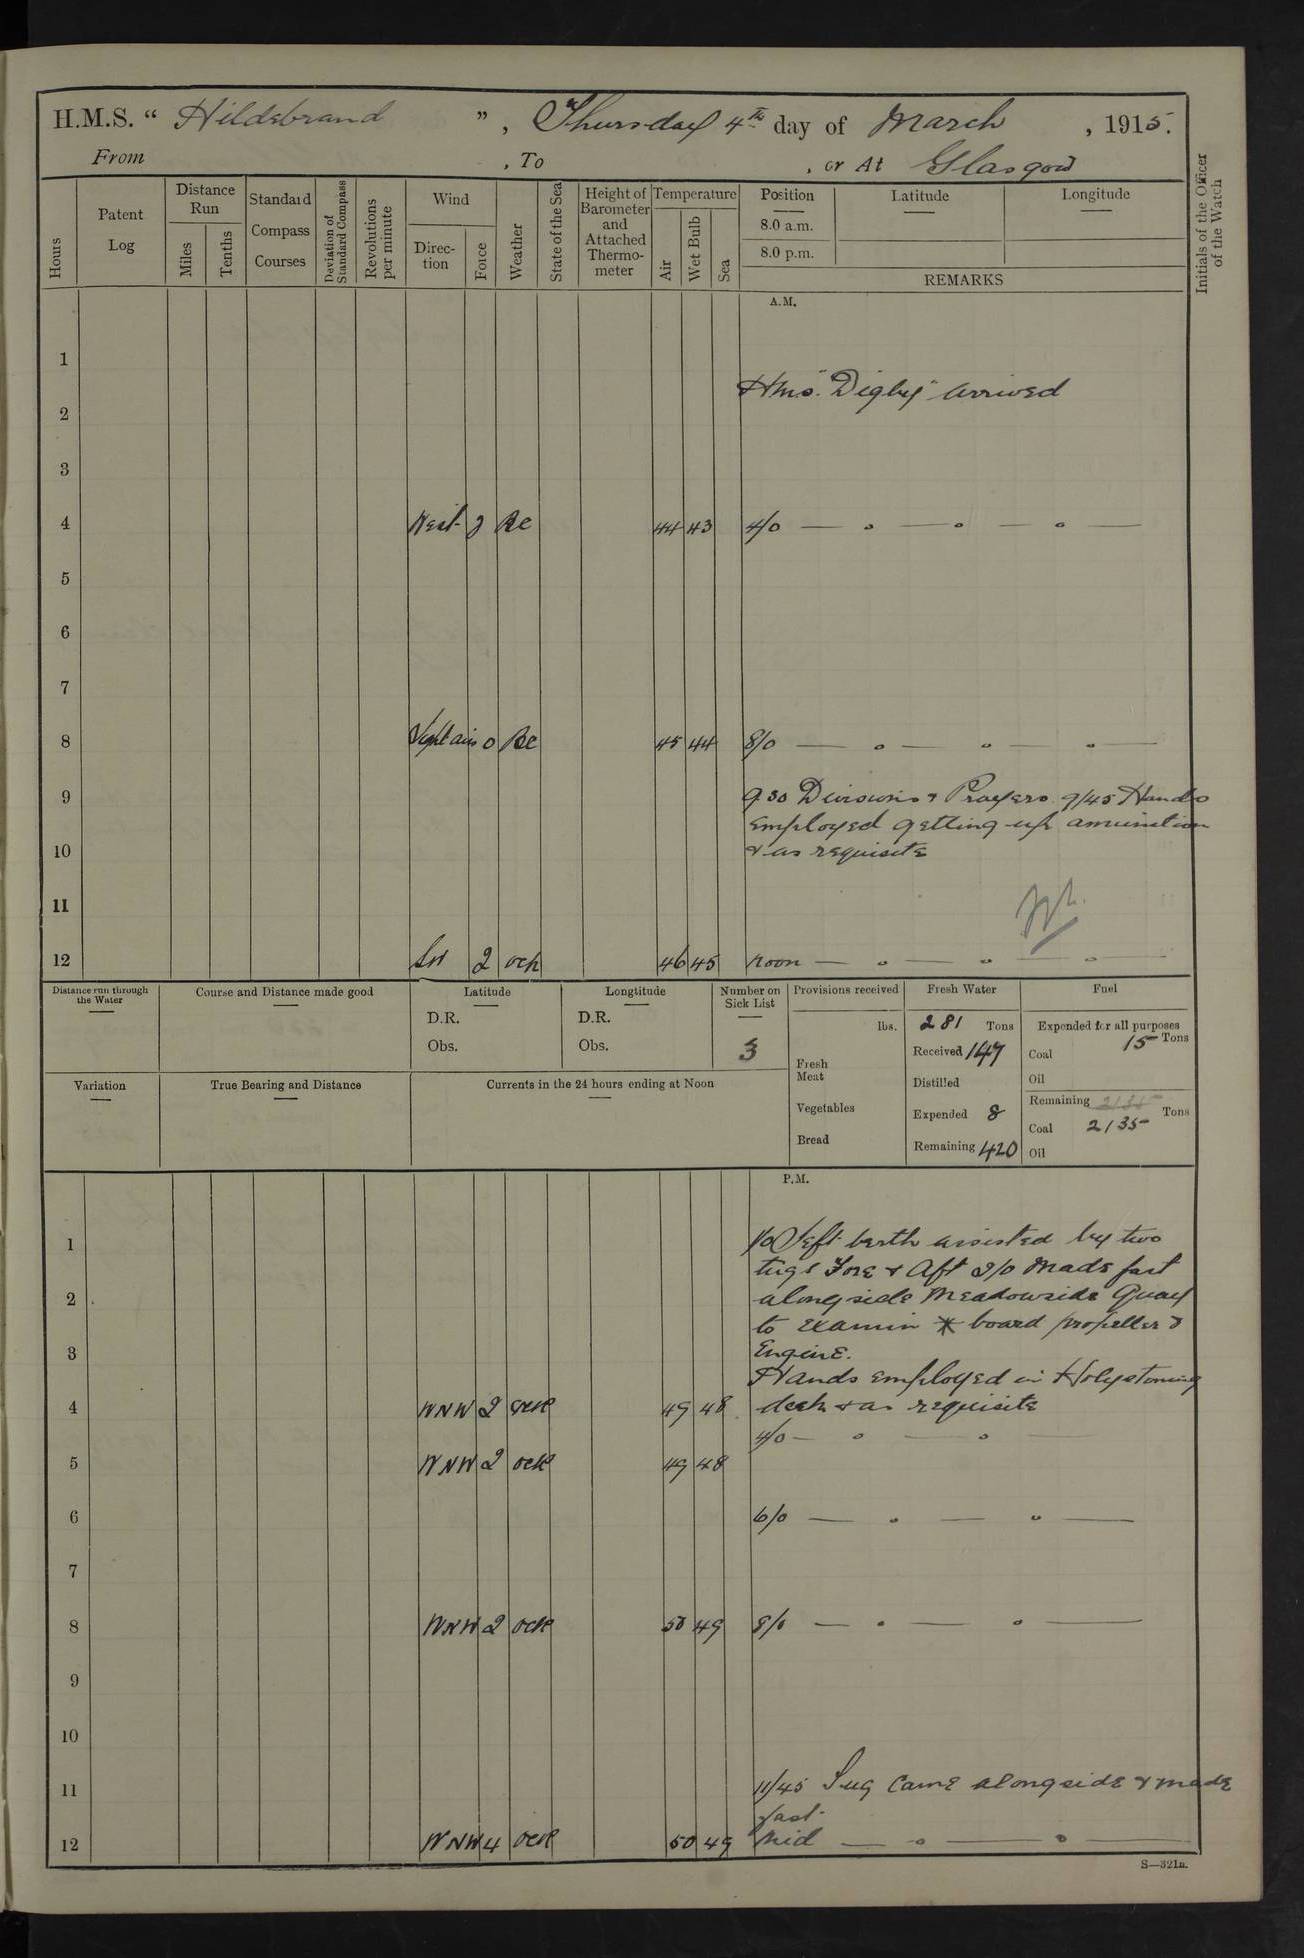 H.M.S. " Hildebrand ", Thursday 4th day of March, 1915.
From , To , or At Glasgow
Hours
Patent Log
Distance Run
Miles
Tenths
Standard Compass Courses
Deviation of Standard Compass
Revolutions per minute
Wind
Direc-tion
Force
Weather
State of the Sea
Height of Barometer and Attached Thermo-meter
Temperature
Air
Wet Bulb
Sea
Position
8.0 a.m.
8.0 p.m.
Latitude
Longitude
REMARKS
Initials of the Officer of the Watch
A.M.
1
HMS. "Digby" arrived
2
3
4 West 2 Bc 44 43 4/0 — " — " — " —
5
6
7
8 Light airs 0 Bc 45 44 8/0 — " — " — " —
9 9.30 Divisions & Prayers. 9/45 Hands
employed getting up amunition
10 & as requisite
11
12 SW 2 och 46 45 Noon — " — " — " —
Distance run through the Water
Course and Distance made good
Latitude
D.R.
Obs.
Longtitude
D.R.
Obs.
Number on Sick List
3
Provisions received
lbs.
Fresh Meat
Vegetables
Bread
Fresh Water
281 Tons
Received 147
Distilled
Expended 8
Remaining 420
Fuel
Expended for all purposes
15 Tons
Coal
Oil
Remaining 2135 Tons
Coal 2135
Oil
Variation
True Bearing and Distance
Currents in the 24 hours ending at Noon
P.M.
1 1/0 Left berth assisted by two
tugs Fore & Aft 2/0 Made fast
2 alongside Meadowside Quay
to examin * board propeller &
3 Engine.
Hands employed in Holystoning
4 WNW 2 ocm 49 48 deck & as requisite
4/0 — " — " —
5 WNW 2 ocm 49 48
6 6/0 — " — " —
7
8 WNW 2 ocm 50 49 8/0 — " — " —
9
10
11 11/45 Tug came alongside & made
fast.
12 WNW 4 ocm 50 49 Mid — " — " —
S—321a.